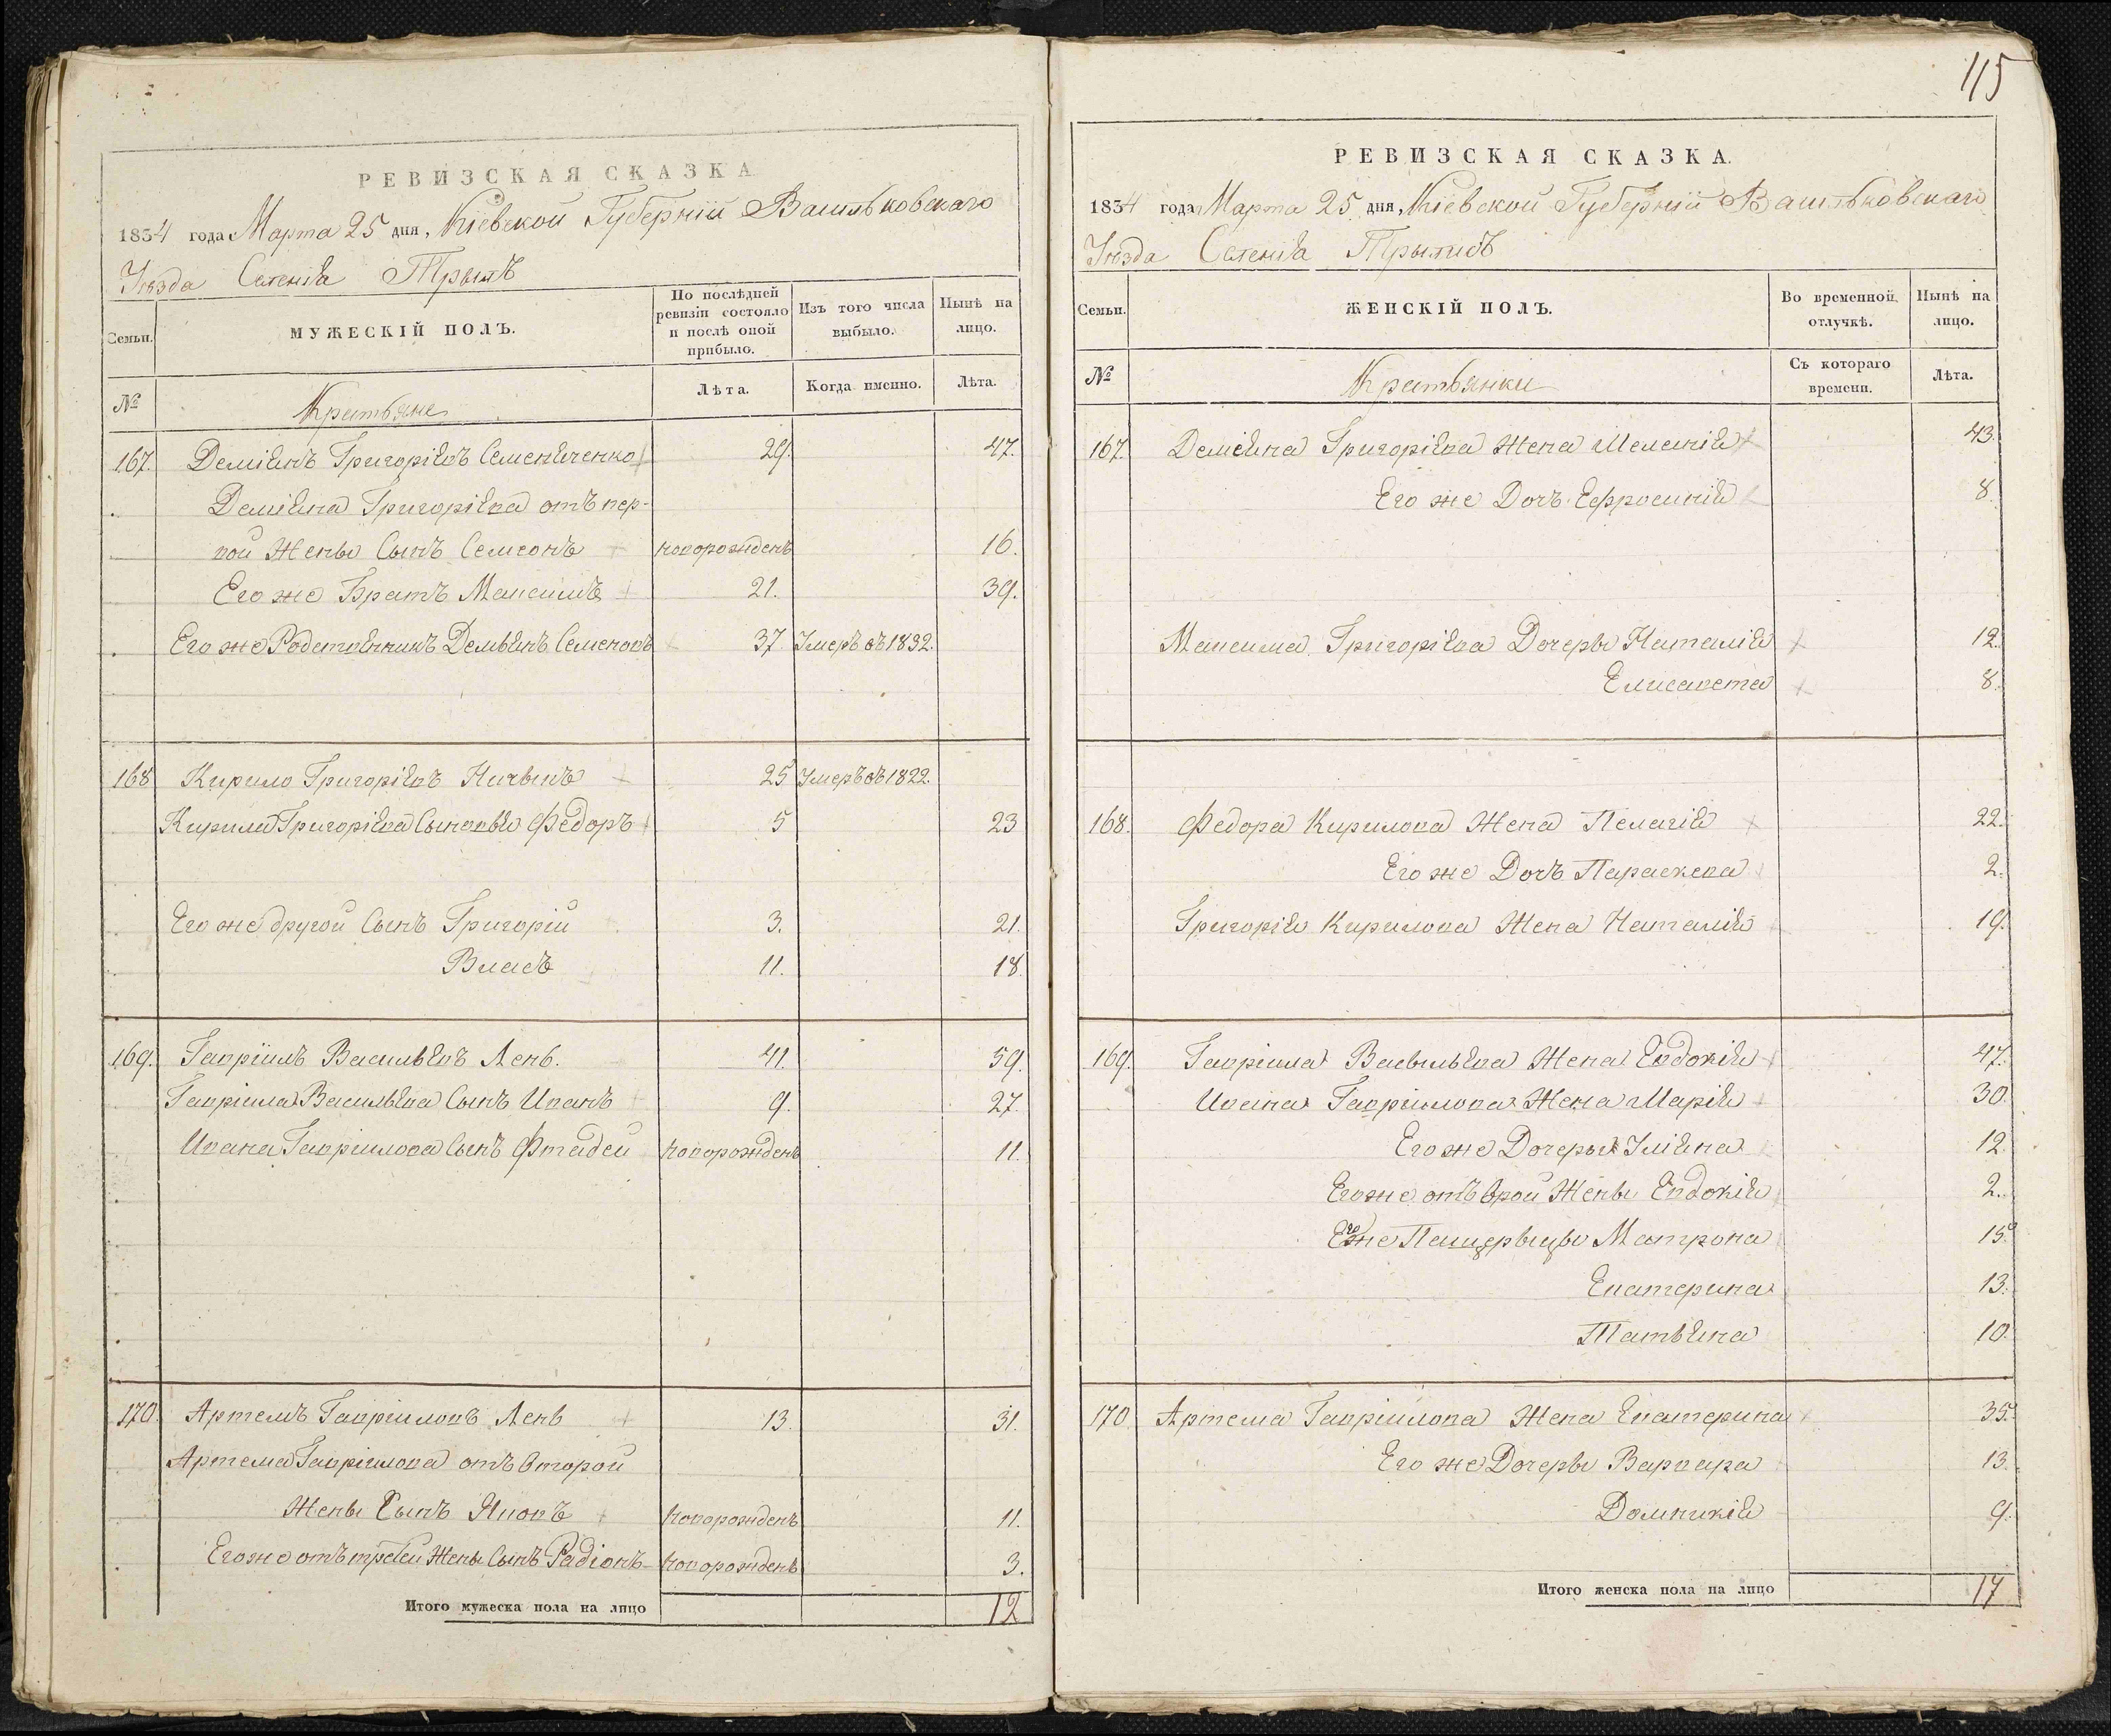 115
РЕВИЗСКАЯ СКАЗКА
1834 года Марта 25 дня, Кіевской Губерніи Васильковскаго
Уѣзда Селенія
Семьи.
МУЖЕСКІЙ ПОЛЪ.
По послѣдней ревизіи состояло и послѣ оной прибыло.
Изъ того числа выбыло.
Нынѣ на лицо.
№
Крестьяне
Лѣта.
Когда именно.
Лѣта.
167. Деміянъ Григоріевъ Семенященко 29. 47.
Деміяна Григоріева отъ пер-
вой Жены Сынъ Семеонъ новорожденъ 16.
Его же Братъ Максимъ 21. 39.
Его же Демьянъ Семеновъ 37 Умеръ въ 1832.
168 Кирило Григоріевъ 25 Умеръ въ 1822.
Кирила Григоріева Сыновья Федоръ 5 23
Его же другой Сынъ Григорій 3. 21.
Власъ 11. 18.
169. Гавріилъ Васильевъ Лень. 41. 59.
Гавріила Васильева Сынъ Иванъ 9. 27.
Ивана Гавріилова Сынъ Фтадей новорожденъ 11.
170. Артемъ Гавріиловъ Лень 13. 31.
Артема Гавріилова отъ второй
Жены Сынъ Яковъ новорожденъ 11.
Его же отъ третей Жены Сынъ Радіонъ новорожденъ 3.
Итого мужеска пола на лицо 12
РЕВИЗСКАЯ СКАЗКА.
1834 года Марта 25 дня, Кіевской Губерніи Васильковскаго
Уѣзда Селенія
Семьи.
ЖЕНСКІЙ ПОЛЪ.
Во временной отлучкѣ.
Нынѣ на лицо.
№
Крестьянки
Съ котораго времени.
Лѣта.
167. Деміяна Григоріева Жена Меланія 43.
Его же Дочь Ефросинія 8
Максима Григоріева Дочеры Наталія 12.
Елисавета 8.
168. Федора Кирилова Жена Пелагія 22.
Его же Дочь Параскева 2.
Григорія Кирилова Жена Наталія 19.
169. Гавріила Васьильева Жена Евдокія 47.
Ивана Гавріилова Жена Марія 30.
Его же Дочеры Уліяна 12.
Его же отъ врой Жены Евдокія 2.
Его же Пащерыцы Матрона 15.
Екатерина 13.
Татьяна 10.
170. Артема Гавріилова Жена Екатерина 35.
Его же Дочеры Варвара 13.
Домникія 9.
Итого женска пола на лицо 17